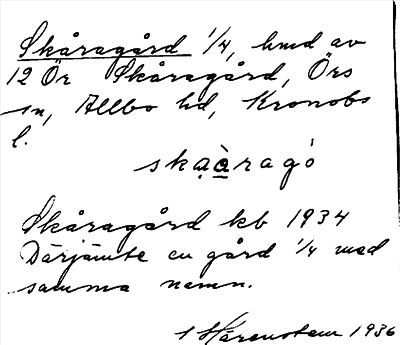 Skåragård 1/4, hmd av
12 Ör Skåragård, Örs
sn, Allbo hd, Kronobs
l.
skạạ̀ragó
Skåragård kb 1934
Därjämte en gård 1/4 med
samma namn.
Härenstam 1936